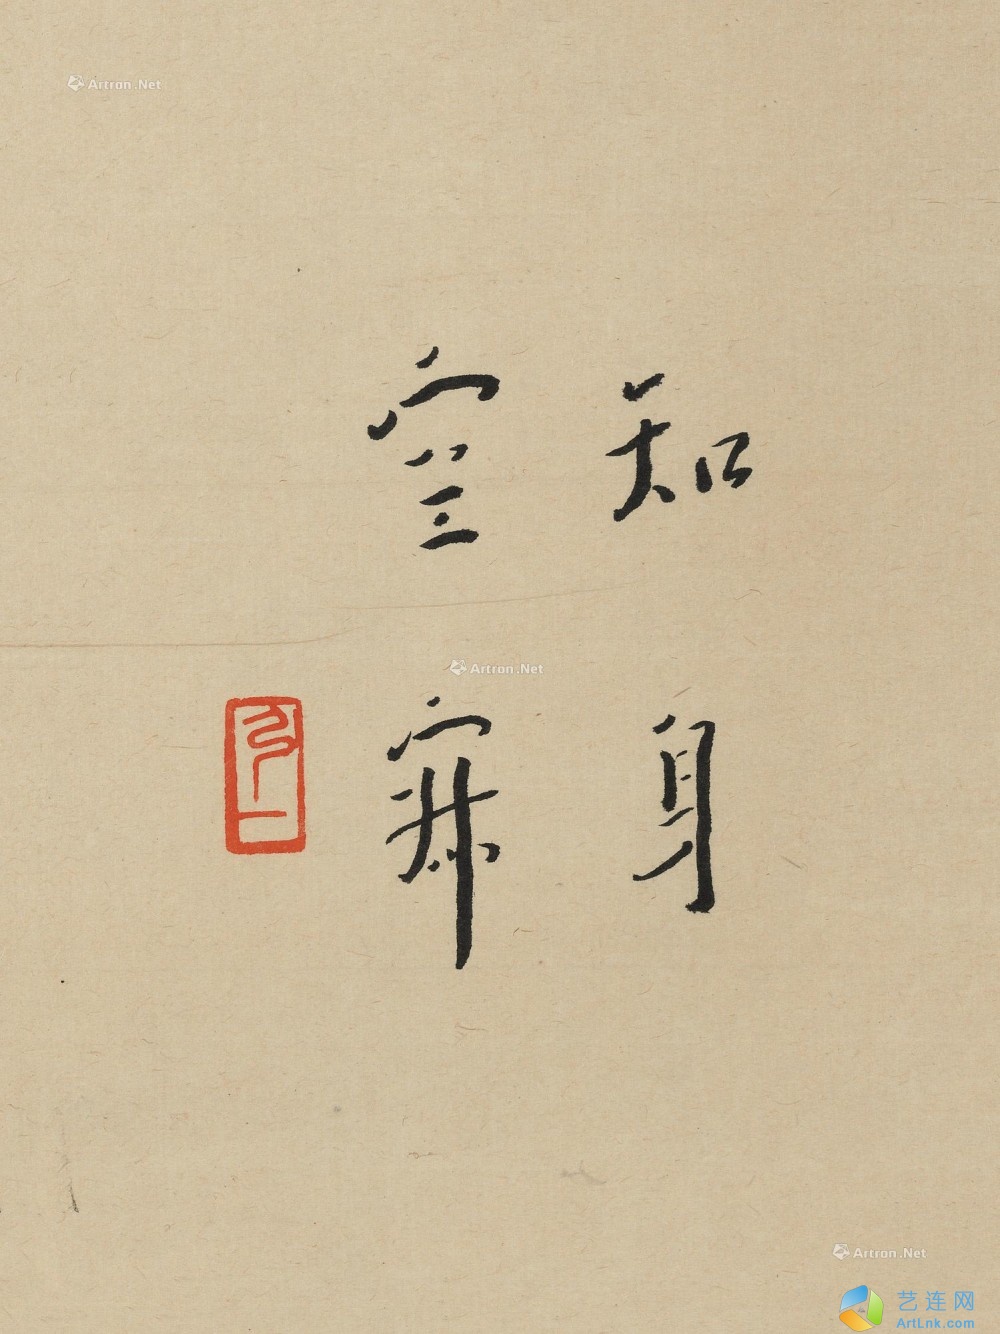 知身
空寂
弘一
Artron.Net
Artron.Net
Artron.Net
艺连网
ArtLnk.com